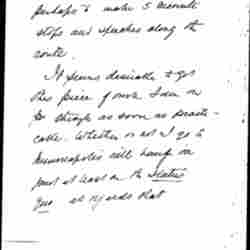 perhaps to make 5 minute
stops and speeches along the
route.
It seems desirable to get
this piece of work I am on
in shape as soon as practi-
cable. Whether or not I go to
Minneapolis will hang in
part at least on the Status
Quo as regards that